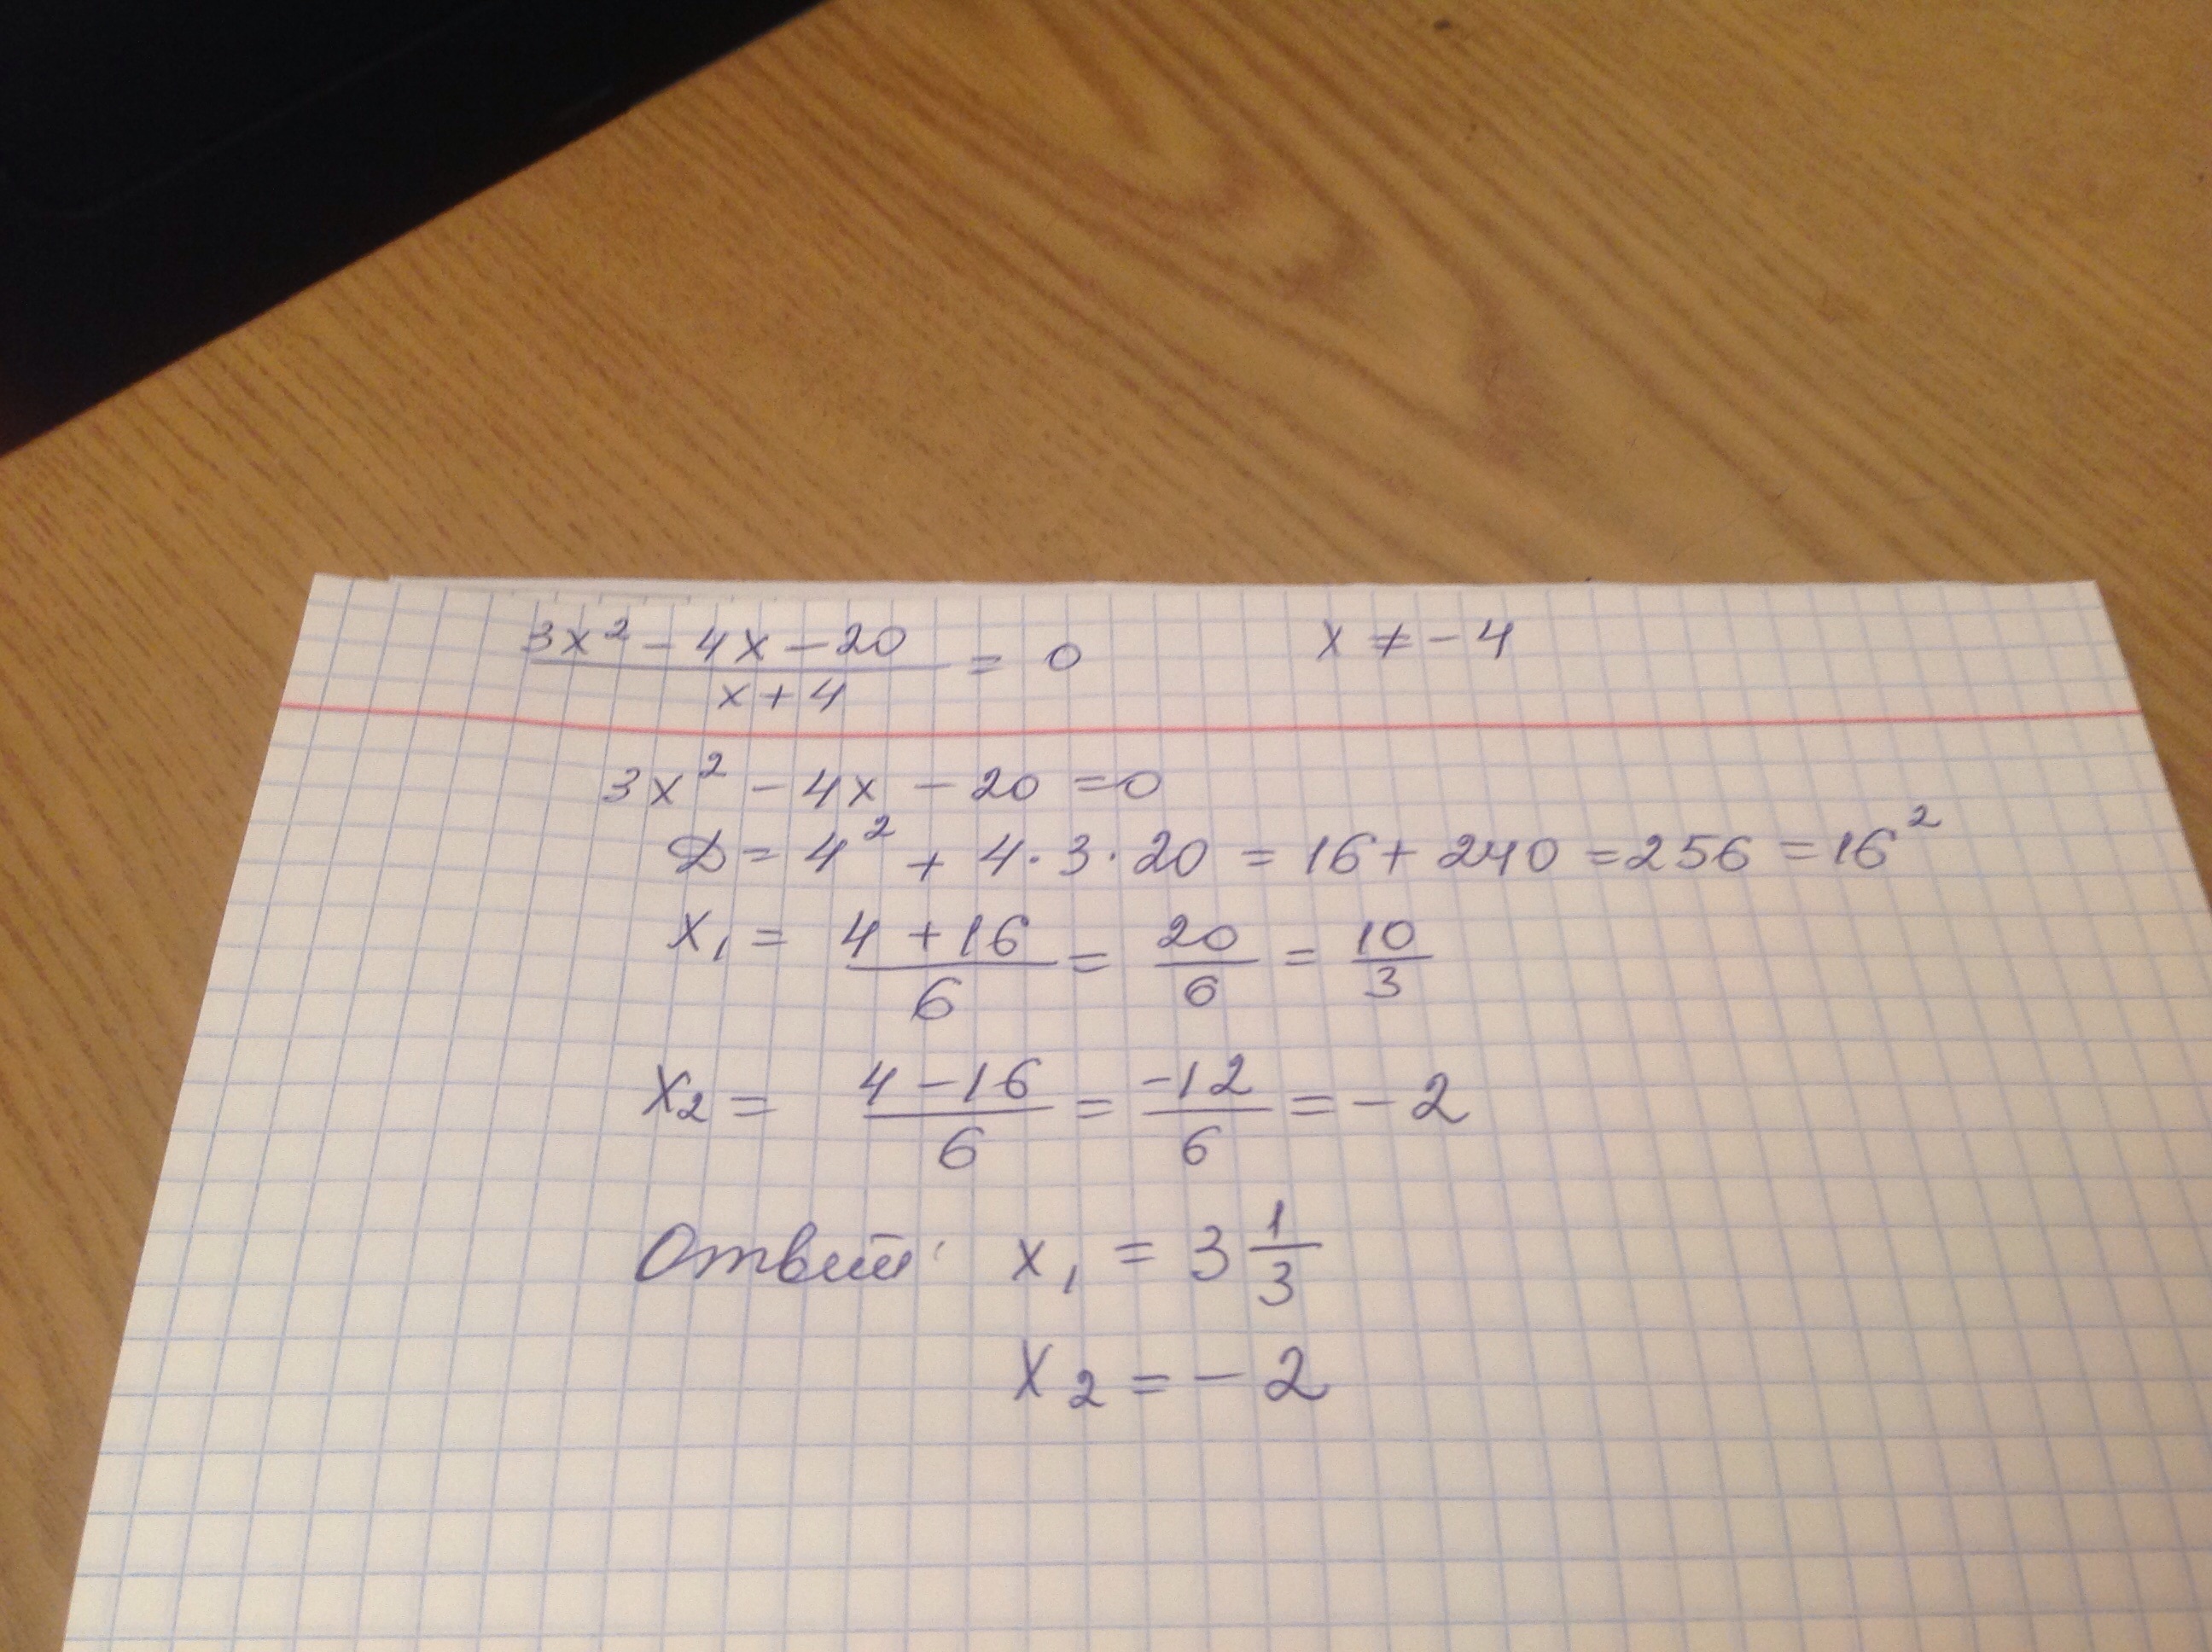 (3x² - 4x - 20)/(x + 4) = 0 x ≠ -4
3x² - 4x - 20 = 0
D = 4² + 4·3·20 = 16 + 240 = 256 = 16²
x₁ = (4 + 16)/6 = 20/6 = 10/3
x₂ = (4 - 16)/6 = -12/6 = -2
Ответ: x₁ = 3 1/3
x₂ = -2